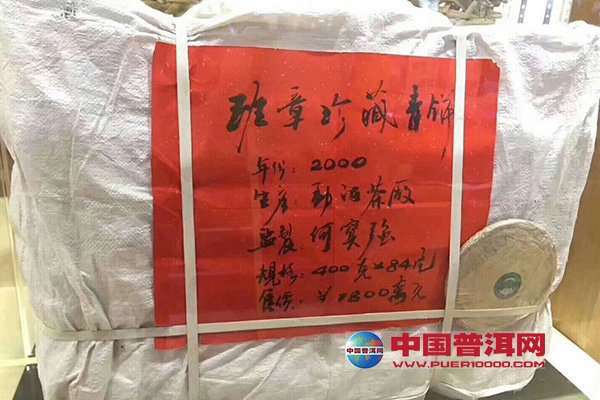 班章珍藏青饼
年份：2000
生产：勐海茶厰
监製：何寶强
规格：400克×84它
售價：￥1800萬元
中国普洱网
中国普洱网
WWW.PUER10000.COM